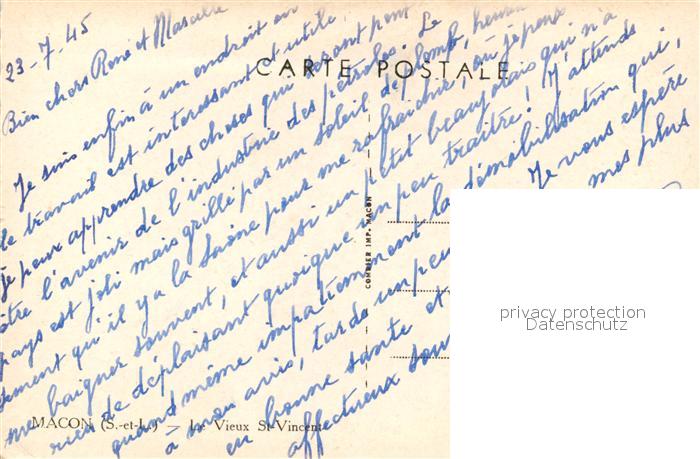 23-7-45
Bien chers René et Marcelle
Je suis enfin à un endroit où
le travail est intéressant et utile,
je peux apprendre des choses qui seront peut
être l'avenir de l'industrie des pétroles. Le
pays est joli mais grillé par un soleil de plomb, heureu
sement qu'il y a la Saône pour me rafraichir, où je peux
me baigner souvent, et aussi un petit beaujolais qui n'a
rien de déplaisant quoique un peu traitre! J'attends
quand même impatiemment la démobilisation qui,
à mon avis, tarde un peu Je vous espère
en bonne santé et mes plus
affectueux sou
CARTE POSTALE
COMBIER IMP. MACON
MACON (S.-et-L.) — Le Vieux St-Vincent
privacy protection
Datenschutz